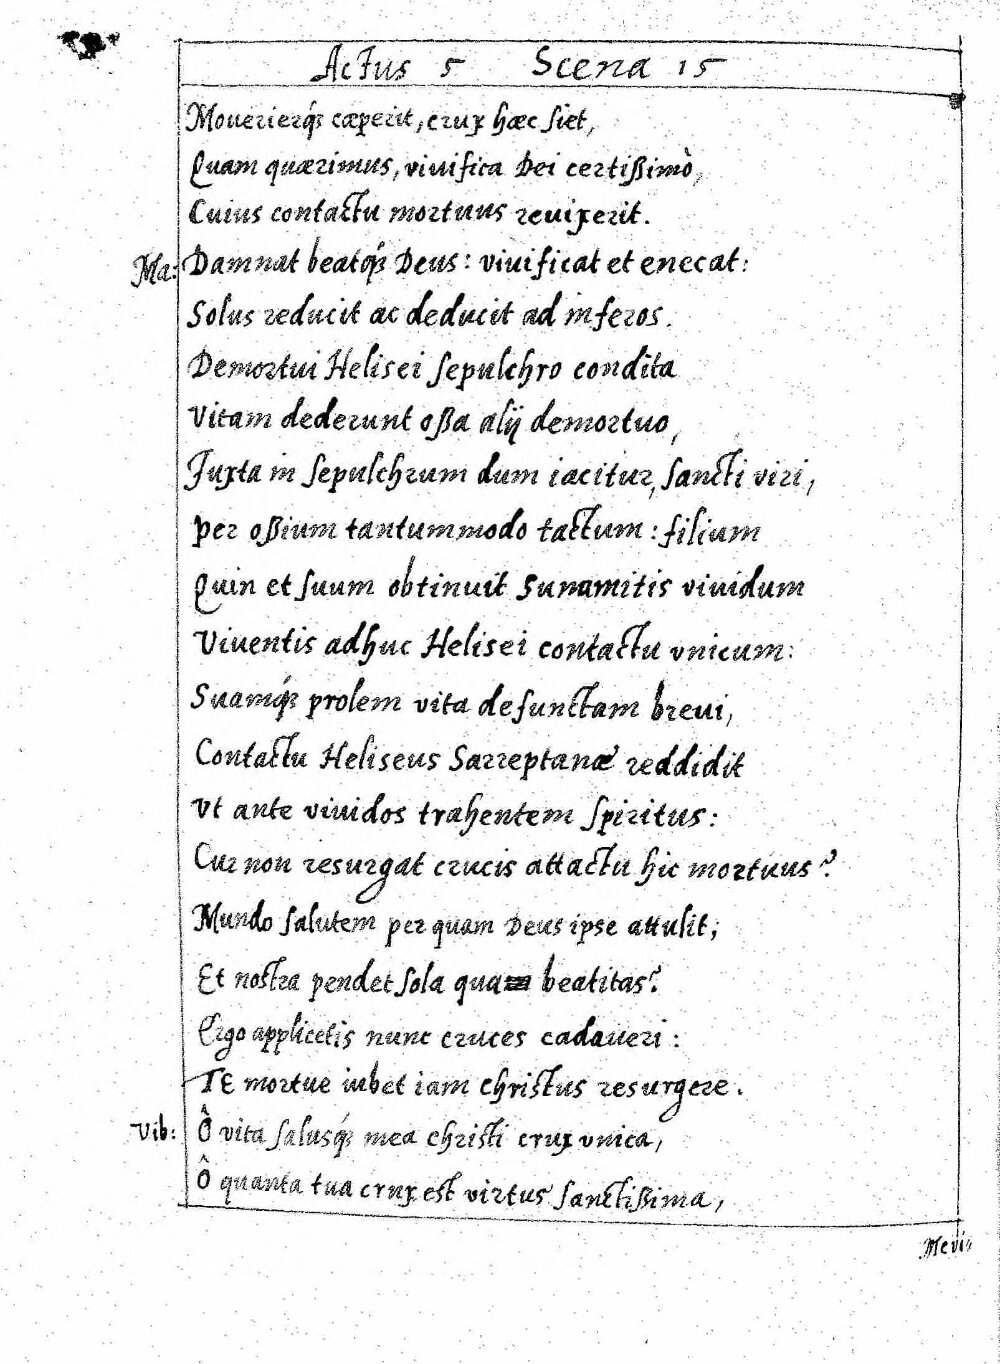 Actus 5 Scena 15
Mouerierq́ꝫ cæperit, crux hæc siet,
Quam quærimus, viuifica Dei certißimò,
Cuius contactu mortuus reuixerit.
Ma: Damnat beatq́ꝫ Deus: viuificat et enecat:
Solus reducit ac deducit ad inferos.
Demortui Helisei sepulchro condita
Vitam dederunt oßa alij demortuo,
Juxta in sepulchrum dum iacitur, sancti viri,
Per oßium tantummodo tactum: filium
Quin et suum obtinuit Sunamitis viuidum
Viuentis adhuc Helisei contactu vnicum:
Suamq́ꝫ prolem vita defunctam breui,
Contactu Heliseus Sarreptanæ reddidit
Vt ante viuidos trahentem spiritus:
Cur non resurgat crucis attactu hic mortuus?
Mundo salutem per quam Deus ipse attulit;
Et nostra pendet sola qua beatitas?
Ergo applicetis nunc cruces cadaueri:
TE mortue iubet iam christus resurgere.
Vib: Ô vita salusq́ꝫ mea christi crux vnica,
Ô quanta tua crux est virtus sanctißima,